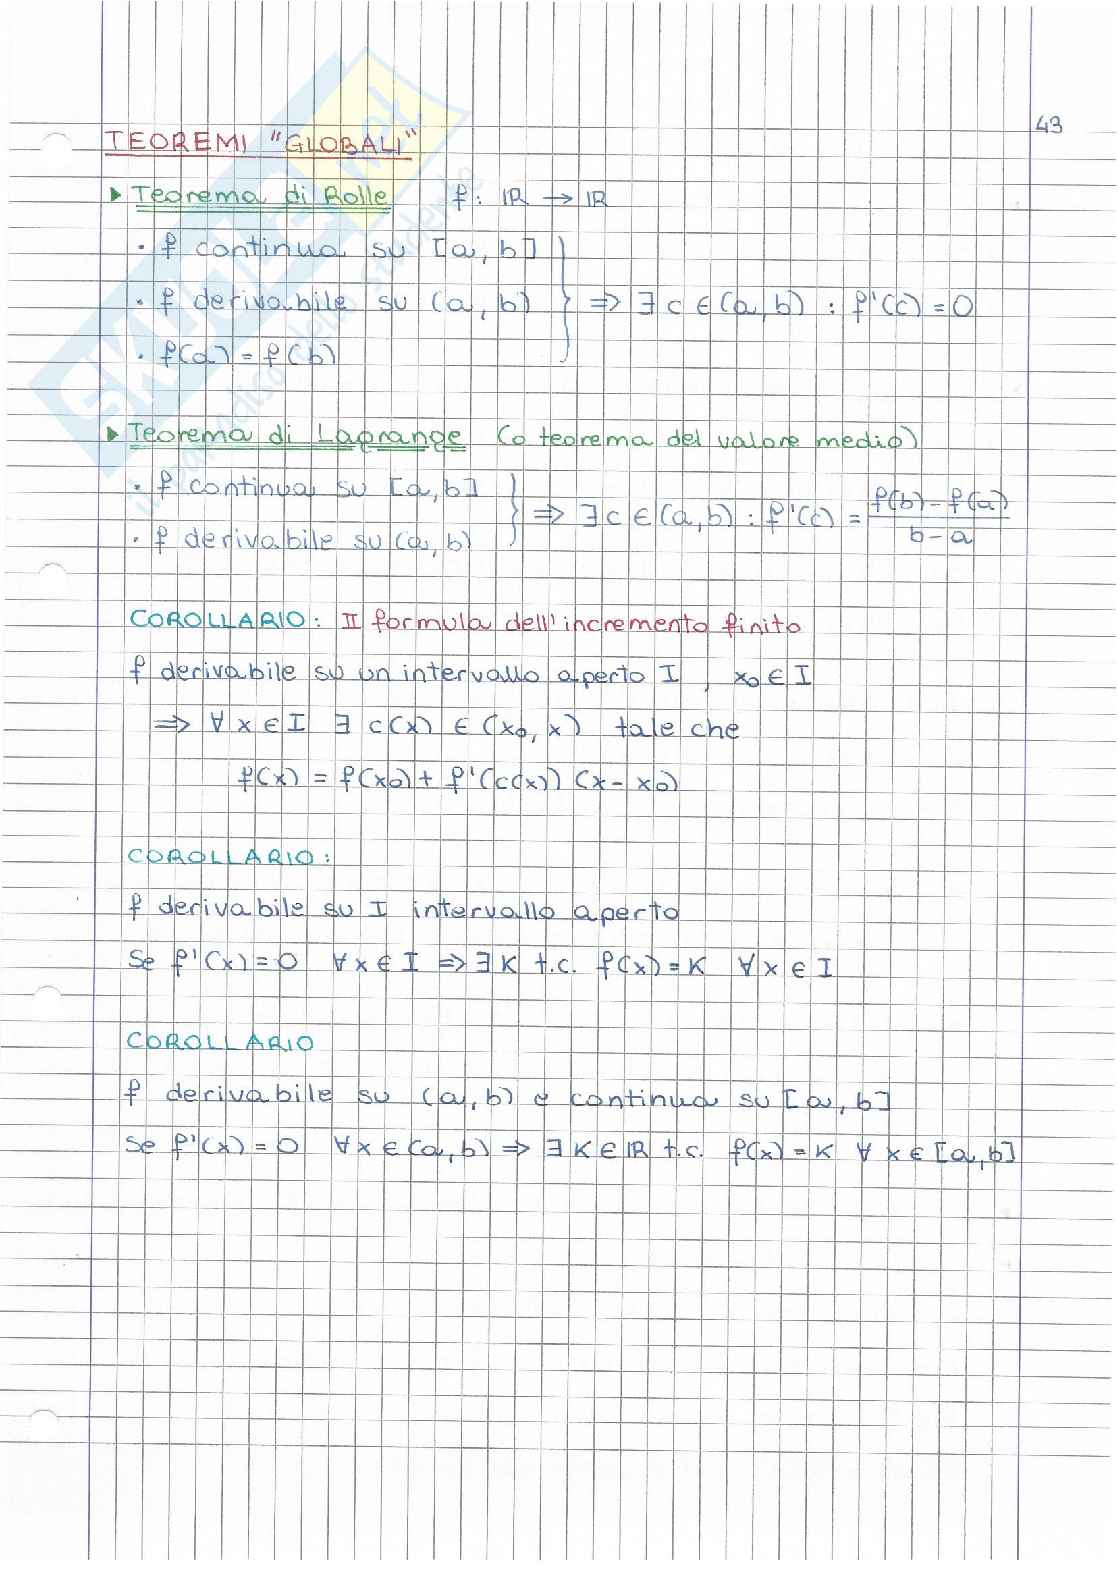 43
TEOREMI "GLOBALI"
▸ Teorema di Rolle f: ℝ → ℝ
· f continua su [a, b]
· f derivabile su (a, b) } ⇒ ∃ c ∈ (a, b) : f'(c) = 0
· f(a) = f(b)
▸ Teorema di Lagrange (o teorema del valore medio)
· f continua su [a, b] } ⇒ ∃ c ∈ (a, b) : f'(c) = f(b) - f(a) / b - a
· f derivabile su (a, b)
COROLLARIO: II formula dell'incremento finito
f derivabile su un intervallo aperto I , x₀ ∈ I
⇒ ∀ x ∈ I ∃ c(x) ∈ (x₀, x) tale che
f(x) = f(x₀) + f'(c(x)) (x - x₀)
COROLLARIO:
f derivabile su I intervallo aperto
Se f'(x) = 0 ∀ x ∈ I ⇒ ∃ K t.c. f(x) = K ∀ x ∈ I
COROLLARIO
f derivabile su (a, b) e continua su [a, b]
Se f'(x) = 0 ∀ x ∈ (a, b) ⇒ ∃ K ∈ ℝ t.c. f(x) = K ∀ x ∈ [a, b]
SKUOLA.net
il paradiso dello studente